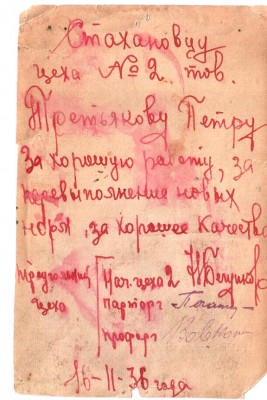 Стахановцу
цеха № 2 тов.
Третьякову Петру
За хорошую работу, за
перевыполнение новых
норм, за хорошее качество
Нач. цеха 2
цеха парторг
профорг
16-II-36 года